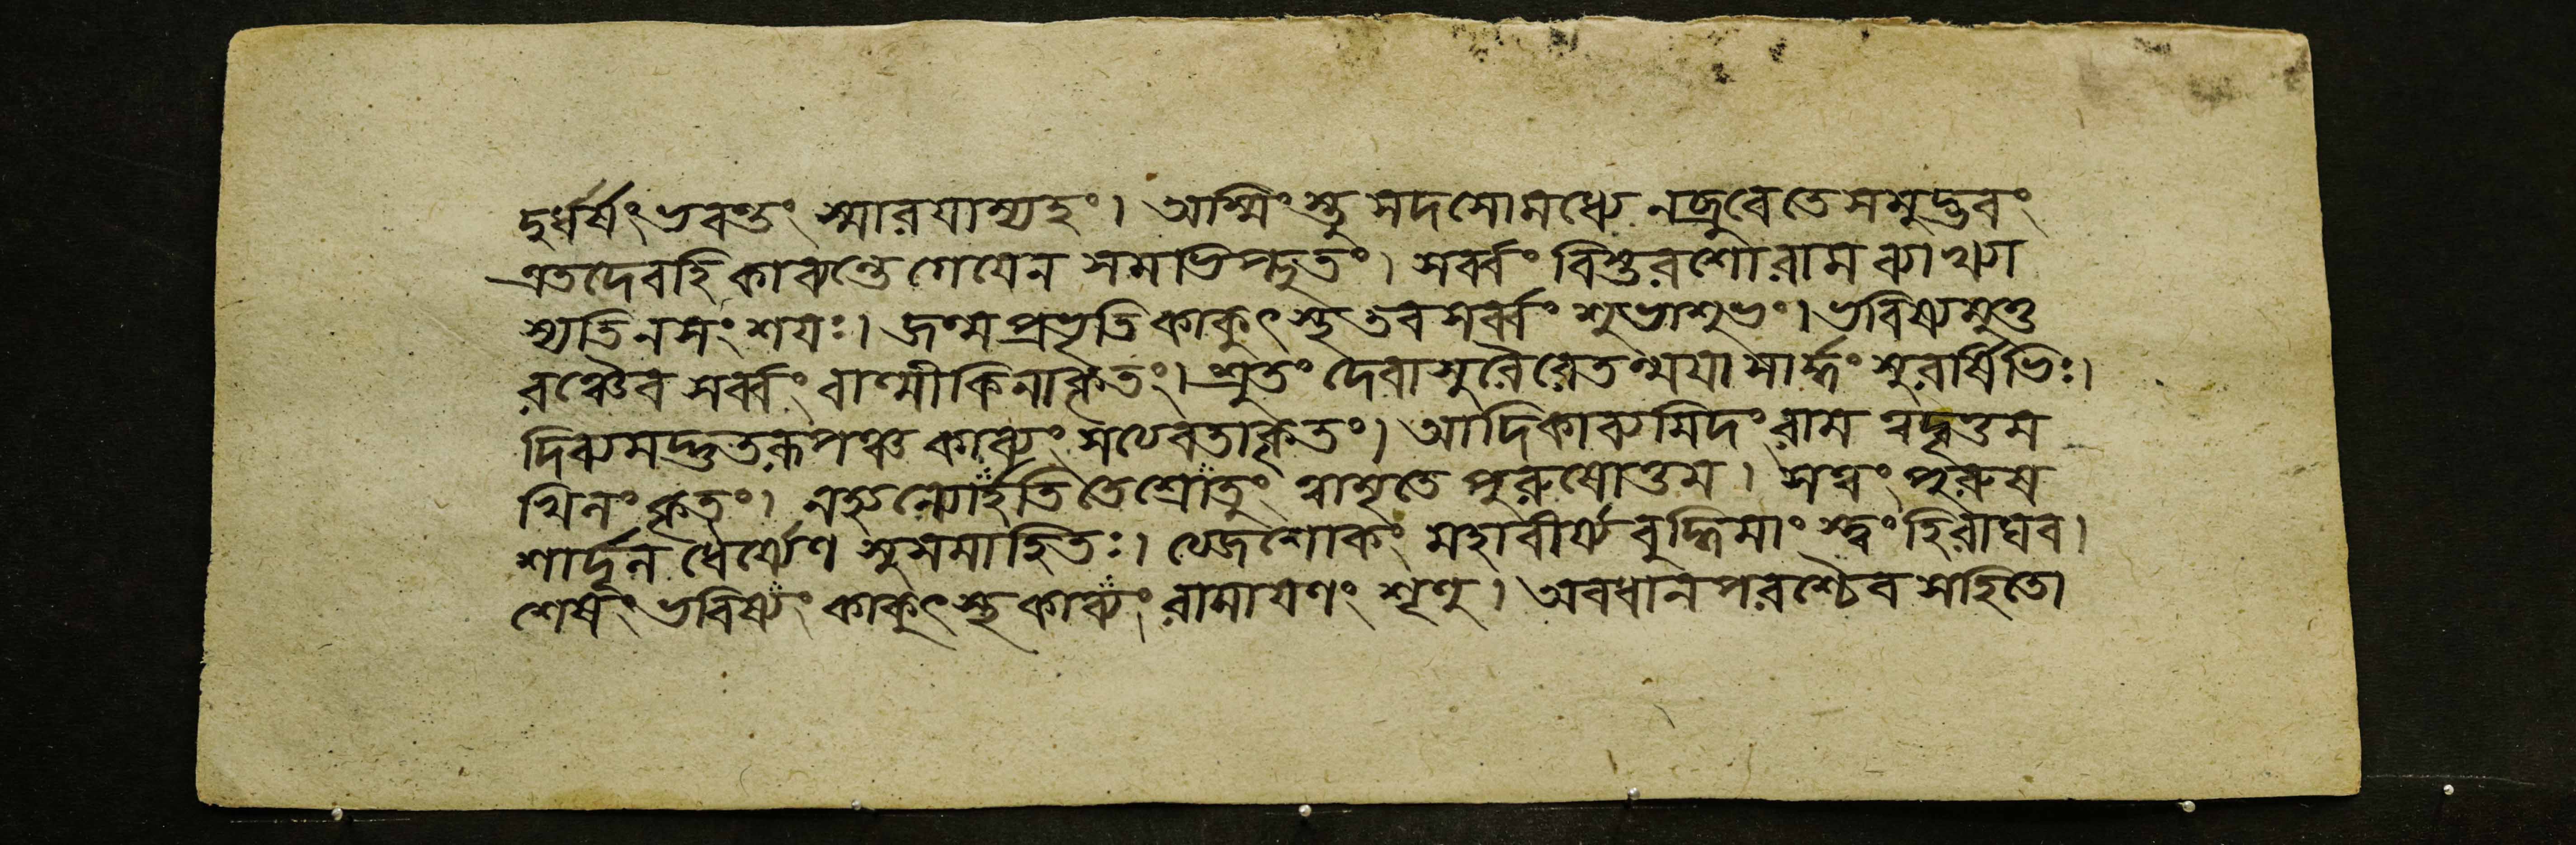 দুর্ধর্ষং ভবন্তং স্মারযাম্যহং। অস্মিংস্তু সদসোমধ্যে নব্রুবেতে সমুদ্ভবং
এতদেবহি কাব্যন্তে গেযেন সমাভিপ্লুতং। সর্ব্বং বিস্তরশোরাম ব্যাখ্যা
স্যতি নসংশযঃ। জন্মপ্রভৃতি কাকুৎস্থ তব সর্ব্বং শুভাশুভং। ভবিষ্যমুত্ত
রঞ্চৈব সর্ব্বং বাল্মীকিনাকৃতং। শ্রুতং দেবাসুরৈরেতন্ময়া সার্দ্ধং সুরর্ষিভিঃ।
দিব্যমদ্ভুতরূপঞ্চ কাব্যং সথেবতাকৃতং। আদিকাব্যমিদং রাম ত্বদ্বৃত্তম
খিলং কৃতং। নহ্যন্যোর্হতি তেশ্রোতুং ত্বামৃতে পুরুষোত্তম। সত্বং পুরুষ
শার্দূল ধৈর্য্যেণ সুসমাহিতঃ। থেজশোকং মহাবীর্য্য বুদ্ধিমাংস্ত্বং হি রাঘব।
শেষং ভবিষ্যং কাকুৎস্থ কাব্যং রামাযণং শৃণু। অবধানপরশ্চৈব সহিতো